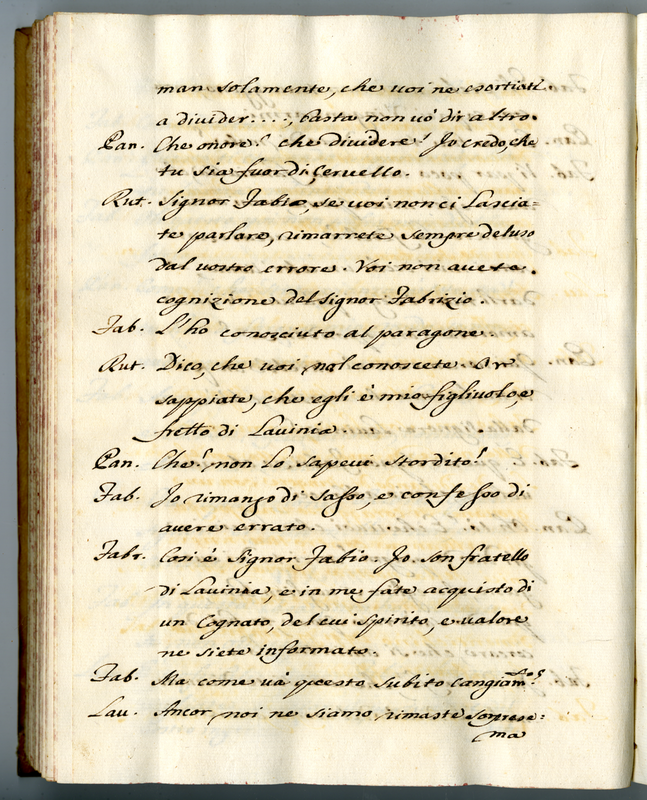 man solamente, che voi ne esortiate
a divider...., basta non vò dir altro.
Pan. Che onore? che dividere? Io credo, che
tu sia fuor di Cervello.
Rut. Signor Fabio, se voi non ci Lascia=
te parlare, rimarrete sempre deluso
dal vostro errore. Voi non avete
cognizione del Signor Fabrizio.
Fab. L'ho conosciuto al paragone.
Rut. Dico, che voi nol conoscete. Or
sappiate, che egli è mio figlivolo, e
frello di Lavinia.
Pan. Che? non Lo sapevi stordito?
Fab. Io rimango di Sasso, e confesso di
avere errato.
Fabr. Così è Signor Fabio. Io son fratello
di Lavinia, e in me fate acquisto di
un Cognato, del cui Spirito, e valore
ne siete informato.
Fab. Ma come và questo subito Cangiam.to?
Lav. Ancor noi ne siamo rimaste sorprese:
ma